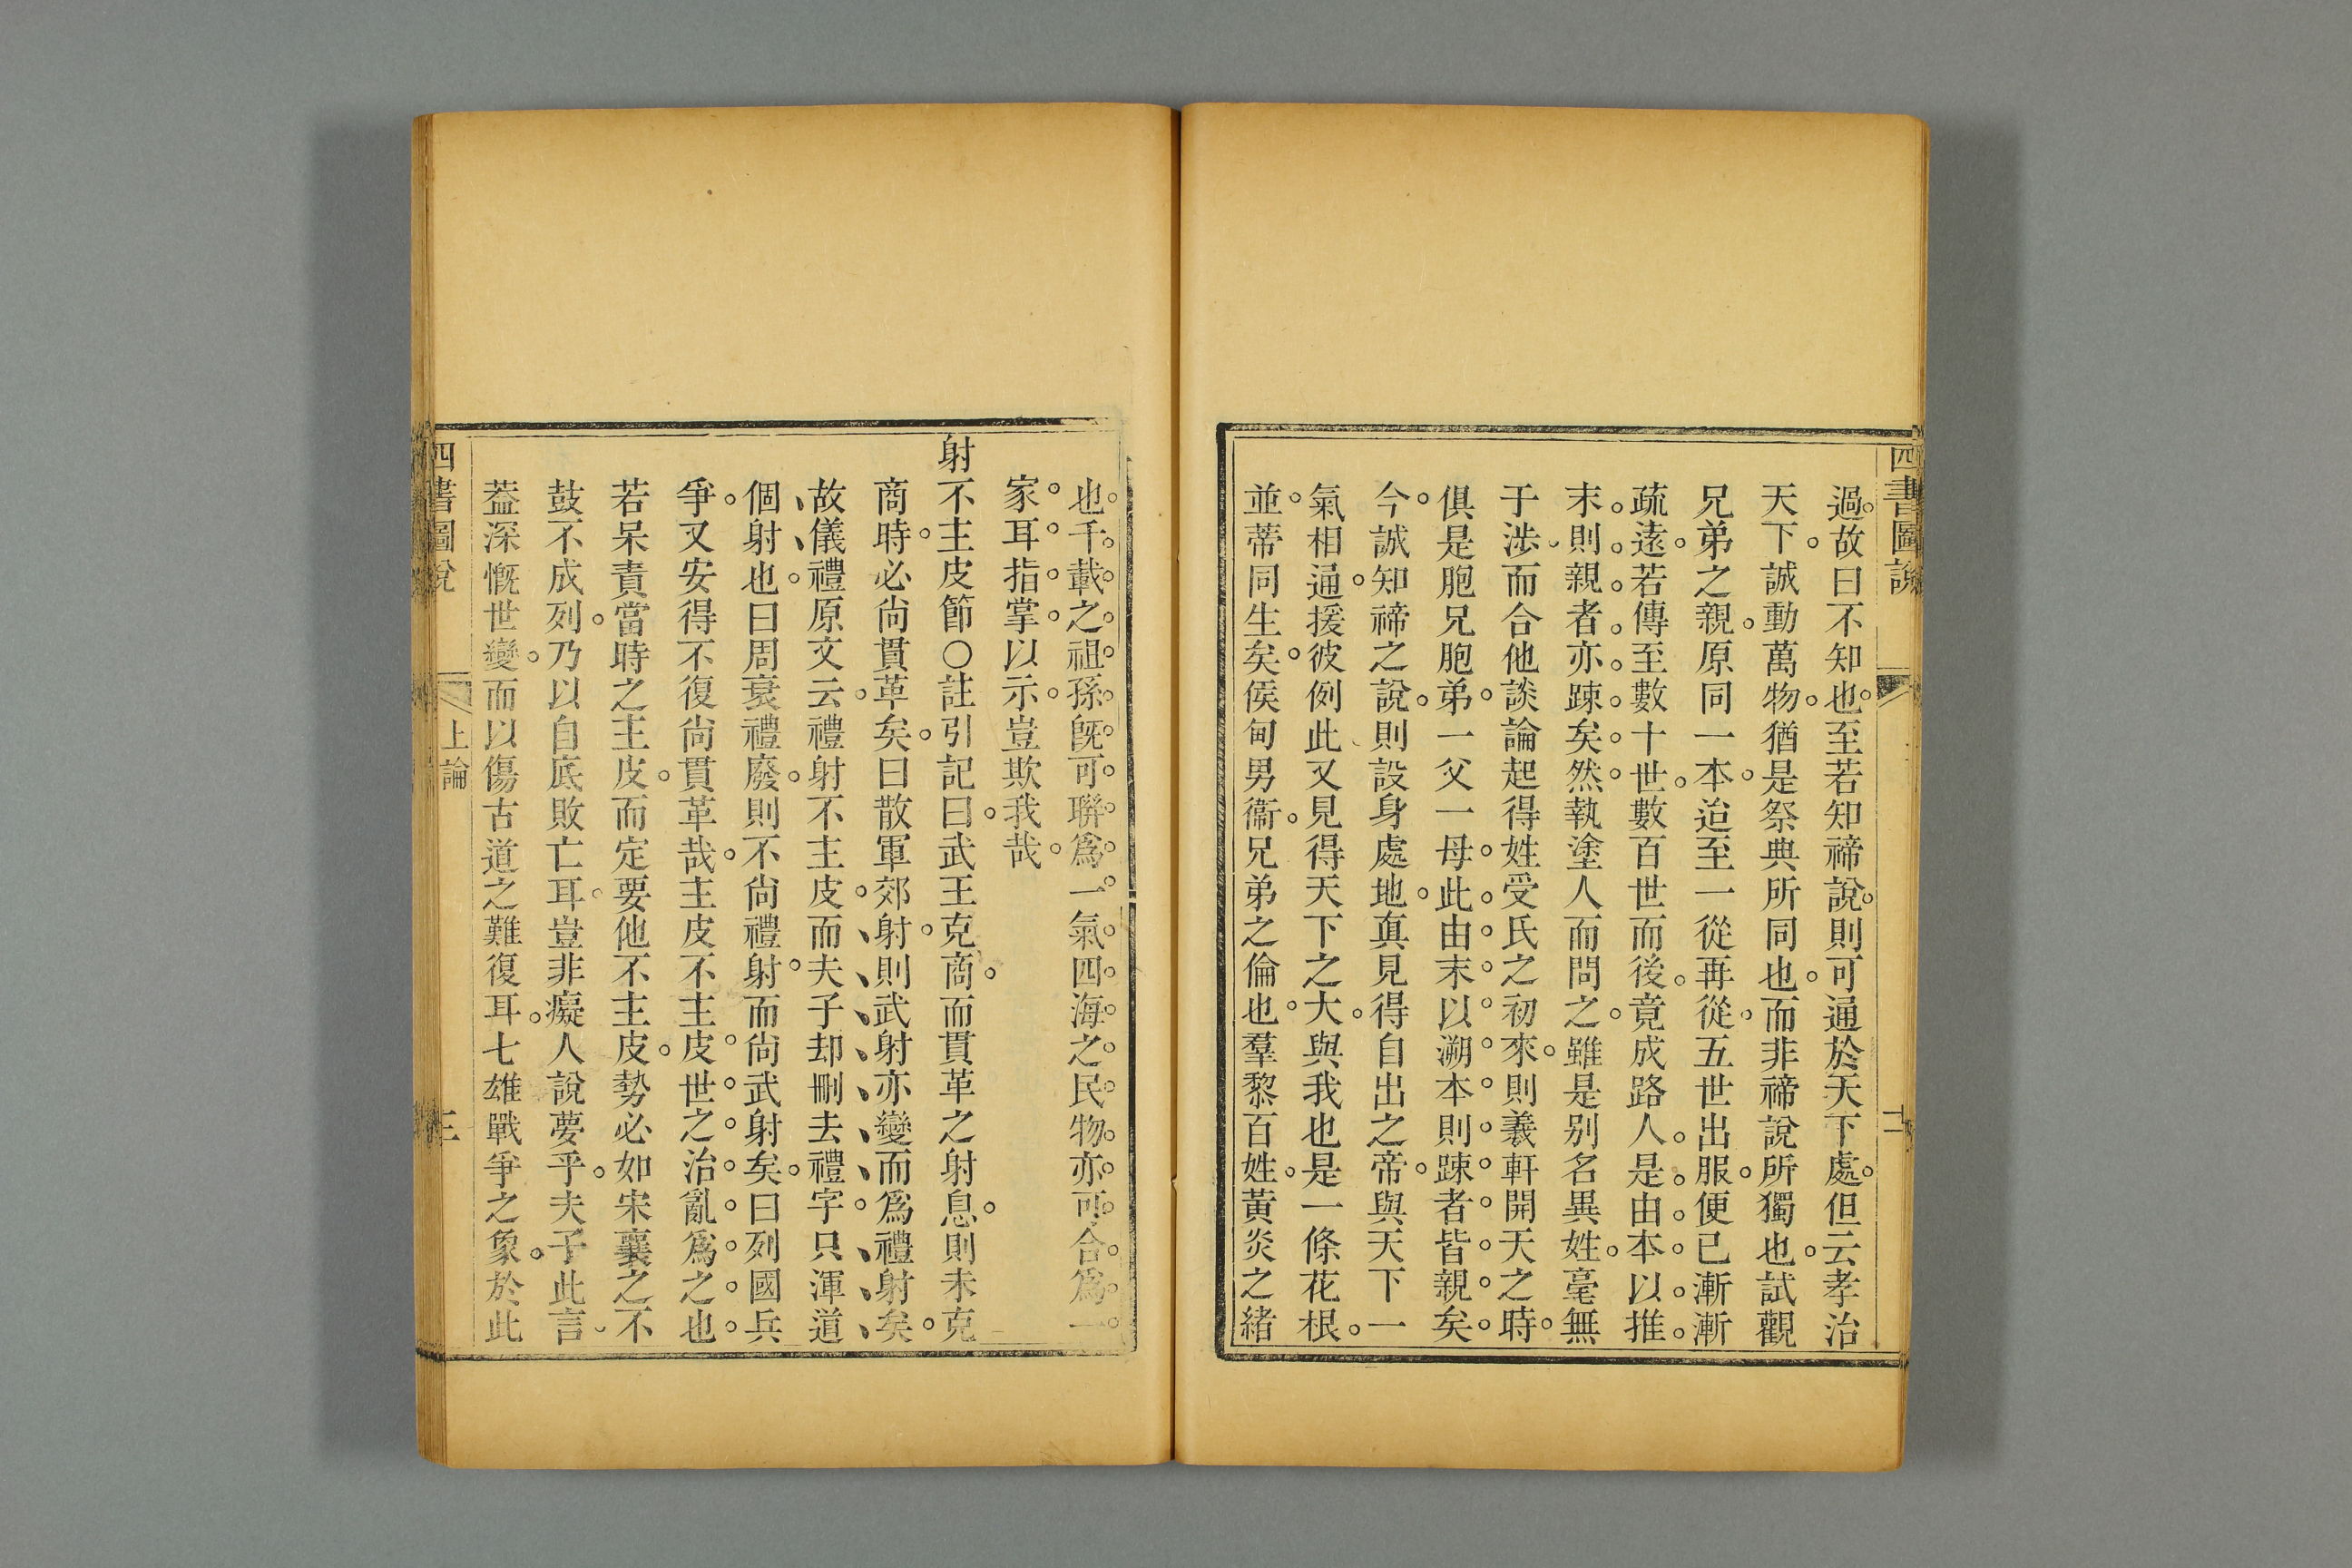 四書圖說
二
過故曰不知也至若知禘說則可通於天下處但云孝治
天下誠動萬物猶是祭典所同也而非禘說所獨也試觀
兄弟之親原同一本迨至一從再從五世出服便已漸漸
疏遠若傳至數十世數百世而後竟成路人是由本以推
末則親者亦踈矣然執塗人而問之雖是别名異姓毫無
于涉而合他談論起得姓受氏之初來則羲軒開天之時
俱是胞兄胞弟一父一母此由末以溯本則踈者皆親矣
今誠知禘之說則設身處地真見得自出之帝與天下一
氣相通援彼例此又見得天下之大與我也是一條花根
並蒂同生矣侯甸男衞兄弟之倫也羣黎百姓黃炎之緒
也千載之祖孫旣可聯爲一氣四海之民物亦可合爲一
家耳指掌以示豈欺我哉
射不主皮節○註引記曰武王克商而貫革之射息則未克
商時必尙貫革矣曰散軍郊射則武射亦變而爲禮射矣
故儀禮原文云禮射不主皮而夫子却刪去禮字只渾道
個射也曰周衰禮廢則不尙禮射而尙武射矣曰列國兵
爭又安得不復尙貫革哉主皮不主皮世之治亂爲之也
若呆責當時之主皮而定要他不主皮勢必如宋襄之不
鼓不成列乃以自底敗亡耳豈非癡人說夢乎夫子此言
葢深慨世變而以傷古道之難復耳七雄戰爭之象於此
四書圖說
上論
三